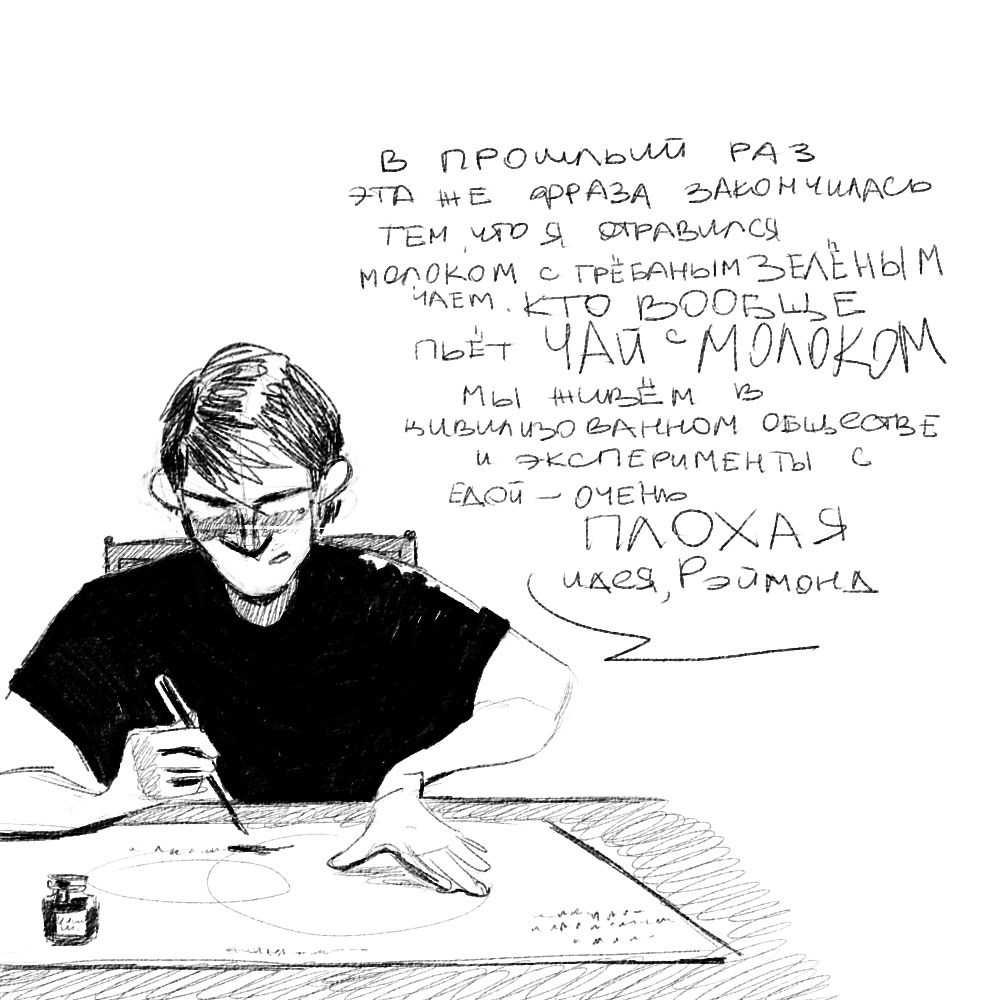 В ПРОШЛЫЙ РАЗ
ЭТА ЖЕ ФРАЗА ЗАКОНЧИЛАСЬ
ТЕМ, ЧТО Я ОТРАВИЛСЯ
МОЛОКОМ С ГРЁБАНЫМ ЗЕЛЁНЫМ
ЧАЕМ. КТО ВООБЩЕ
ПЬЁТ ЧАЙ С МОЛОКОМ
МЫ ЖИВЁМ В
ЦИВИЛИЗОВАННОМ ОБЩЕСТВЕ
И ЭКСПЕРИМЕНТЫ С
ЕДОЙ – ОЧЕНЬ
ПЛОХАЯ
ИДЕЯ, РЭЙМОНД